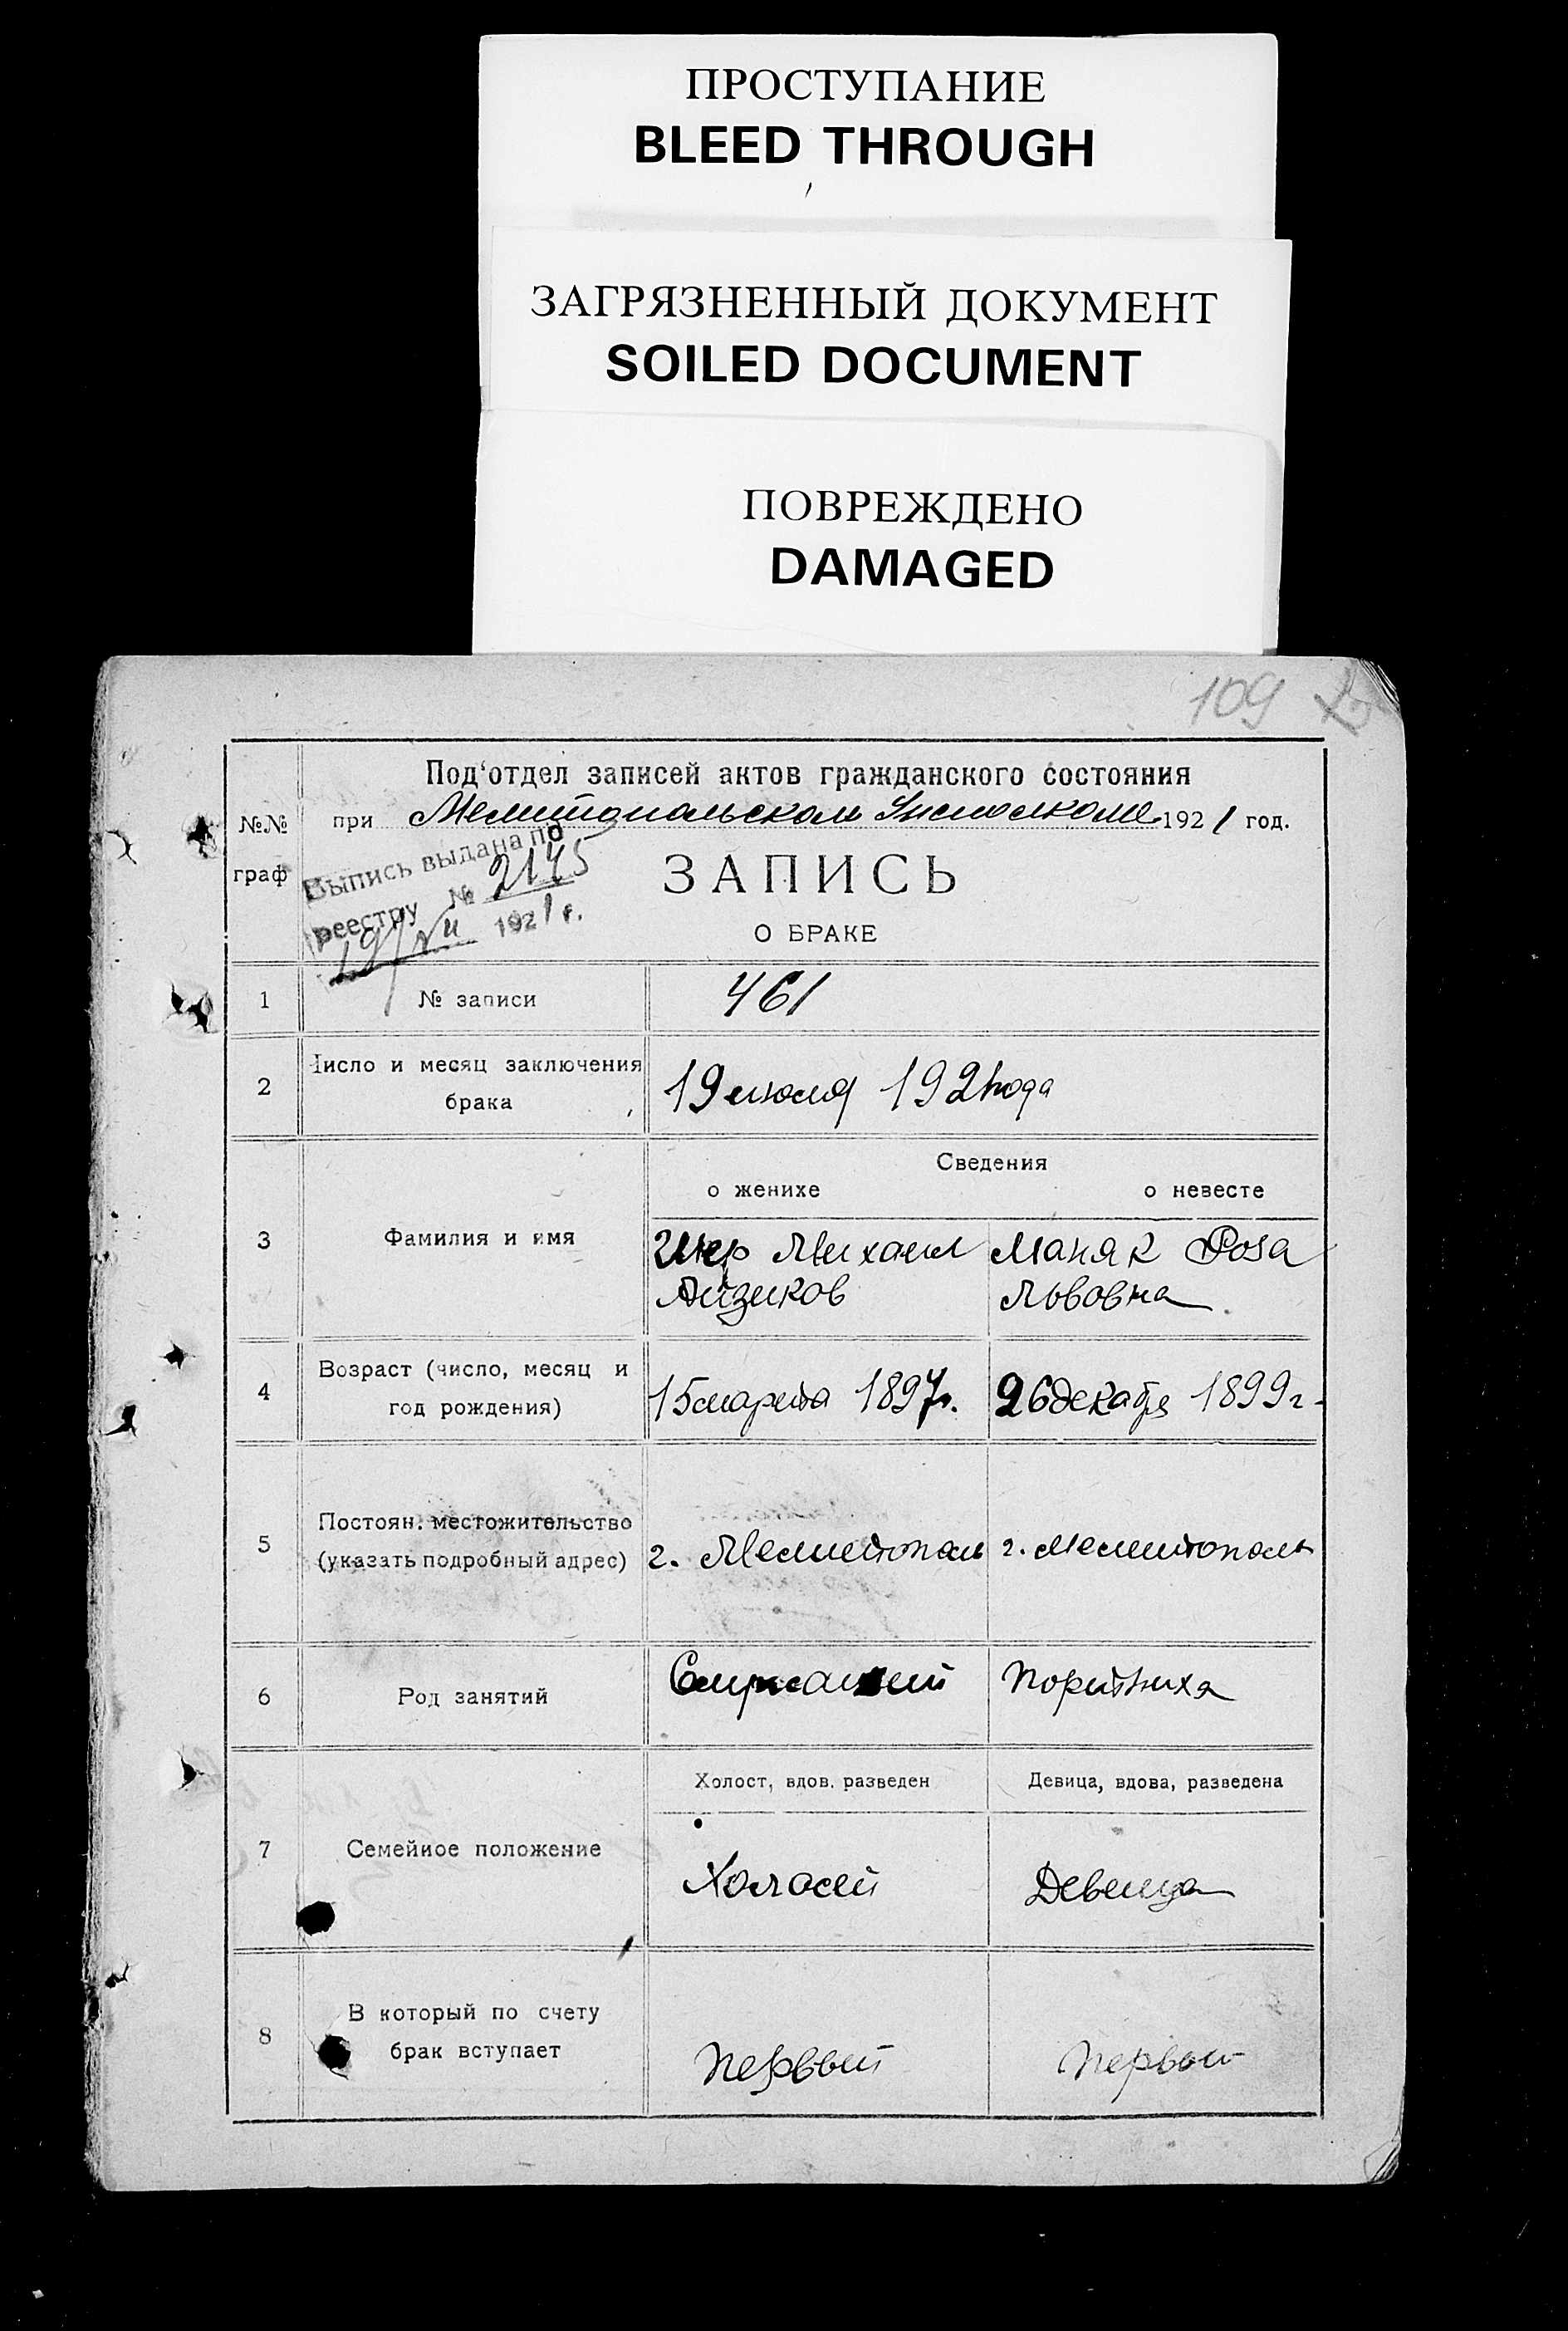 ПРОСТУПАНИЕ
BLEED THROUGH
ЗАГРЯЗНЕННЫЙ ДОКУМЕНТ
SOILED DOCUMENT
ПОВРЕЖДЕНО
DAMAGED
109
Под'отдел записей актов гражданского состояния
№№ граф
при Мелитопольском 1921 год.
Выпись выдана по
реестру № 2145
19/VII 1921 г.
ЗАПИСЬ
О БРАКЕ
1 № записи 461
2 Число и месяц заключения брака 19 июля 1921 года
Сведения
о женихе о невесте
3 Фамилия и имя
Михаил Маняк Роза
Айзиков Львовна
4 Возраст (число, месяц и год рождения) 15 марта 1897г. 26 декабря 1899г.
5 Постоян. местожительство (указать подробный адрес) г. Мелитополь г. Мелитополь
6 Род занятий Служащий Портниха
Холост, вдов. разведен Девица, вдова, разведена
7 Семейное положение Холостй Девица
8 В который по счету брак вступает Первый Первый